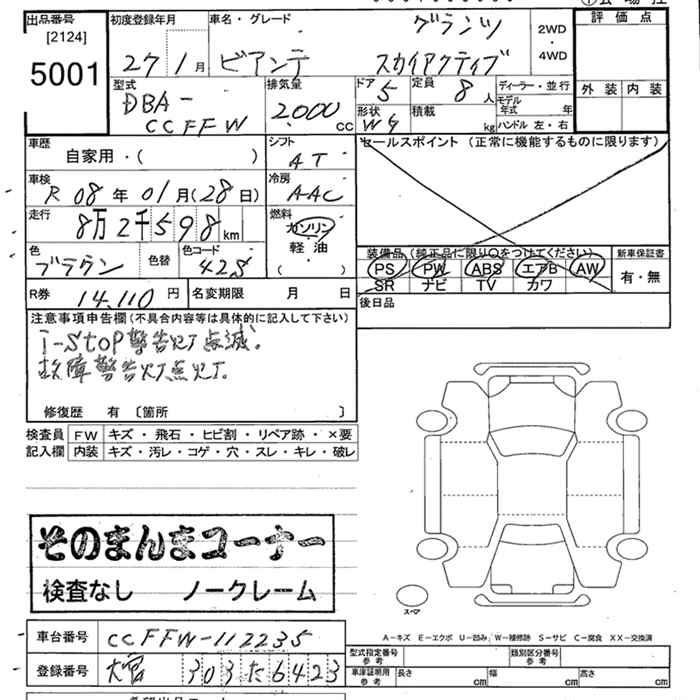 出品番号
[2124]
5001
初度登録年月
27 1月
車名・グレード
グランツ
ビアンテ スカイアクティブ
2WD
・
4WD
評価点
外装 内装
型式
DBA-
CCFFW
排気量
2000 cc
ドア 5
定員 8人
形状 W4
積載 kg
ディーラー・並行
モデル年式 年
ハンドル 左・右
車歴
自家用・( )
シフト
AT
セールスポイント (正常に機能するものに限ります)
車検
R 08年 01月(28日)
冷房
AAC
走行
8万2千598km
燃料
ガソリン
軽油
( ・ )
色
ブラウン
色替
色コード
42S
装備品 (純正品に限り○をつけてください)
PS PW ABS エアB AW
SR ナビ TV カワ
新車保証書
有・無
R券 14,110円
名変期限 月 日
後日品
注意事項申告欄(不具合内容等は具体的に記入して下さい)
i-Stop警告灯点滅。
故障警告灯点灯。
修復歴 有 〔箇所 〕
検査員 FW キズ・飛石・ヒビ割・リペア跡・×要
記入欄 内装 キズ・汚レ・コゲ・穴・スレ・キレ・破レ
そのまんまコーナー
検査なし ノークレーム
スペア
A-キズ E-エクボ U-凹み W-補修跡 S-サビ C-腐食 XX-交換済
車台番号 CCFFW-112235
登録番号 大宮 303 た 6423
型式指定番号 参考
類別区分番号 参考
車庫証明用 参考 長さ cm 幅 cm 高さ cm